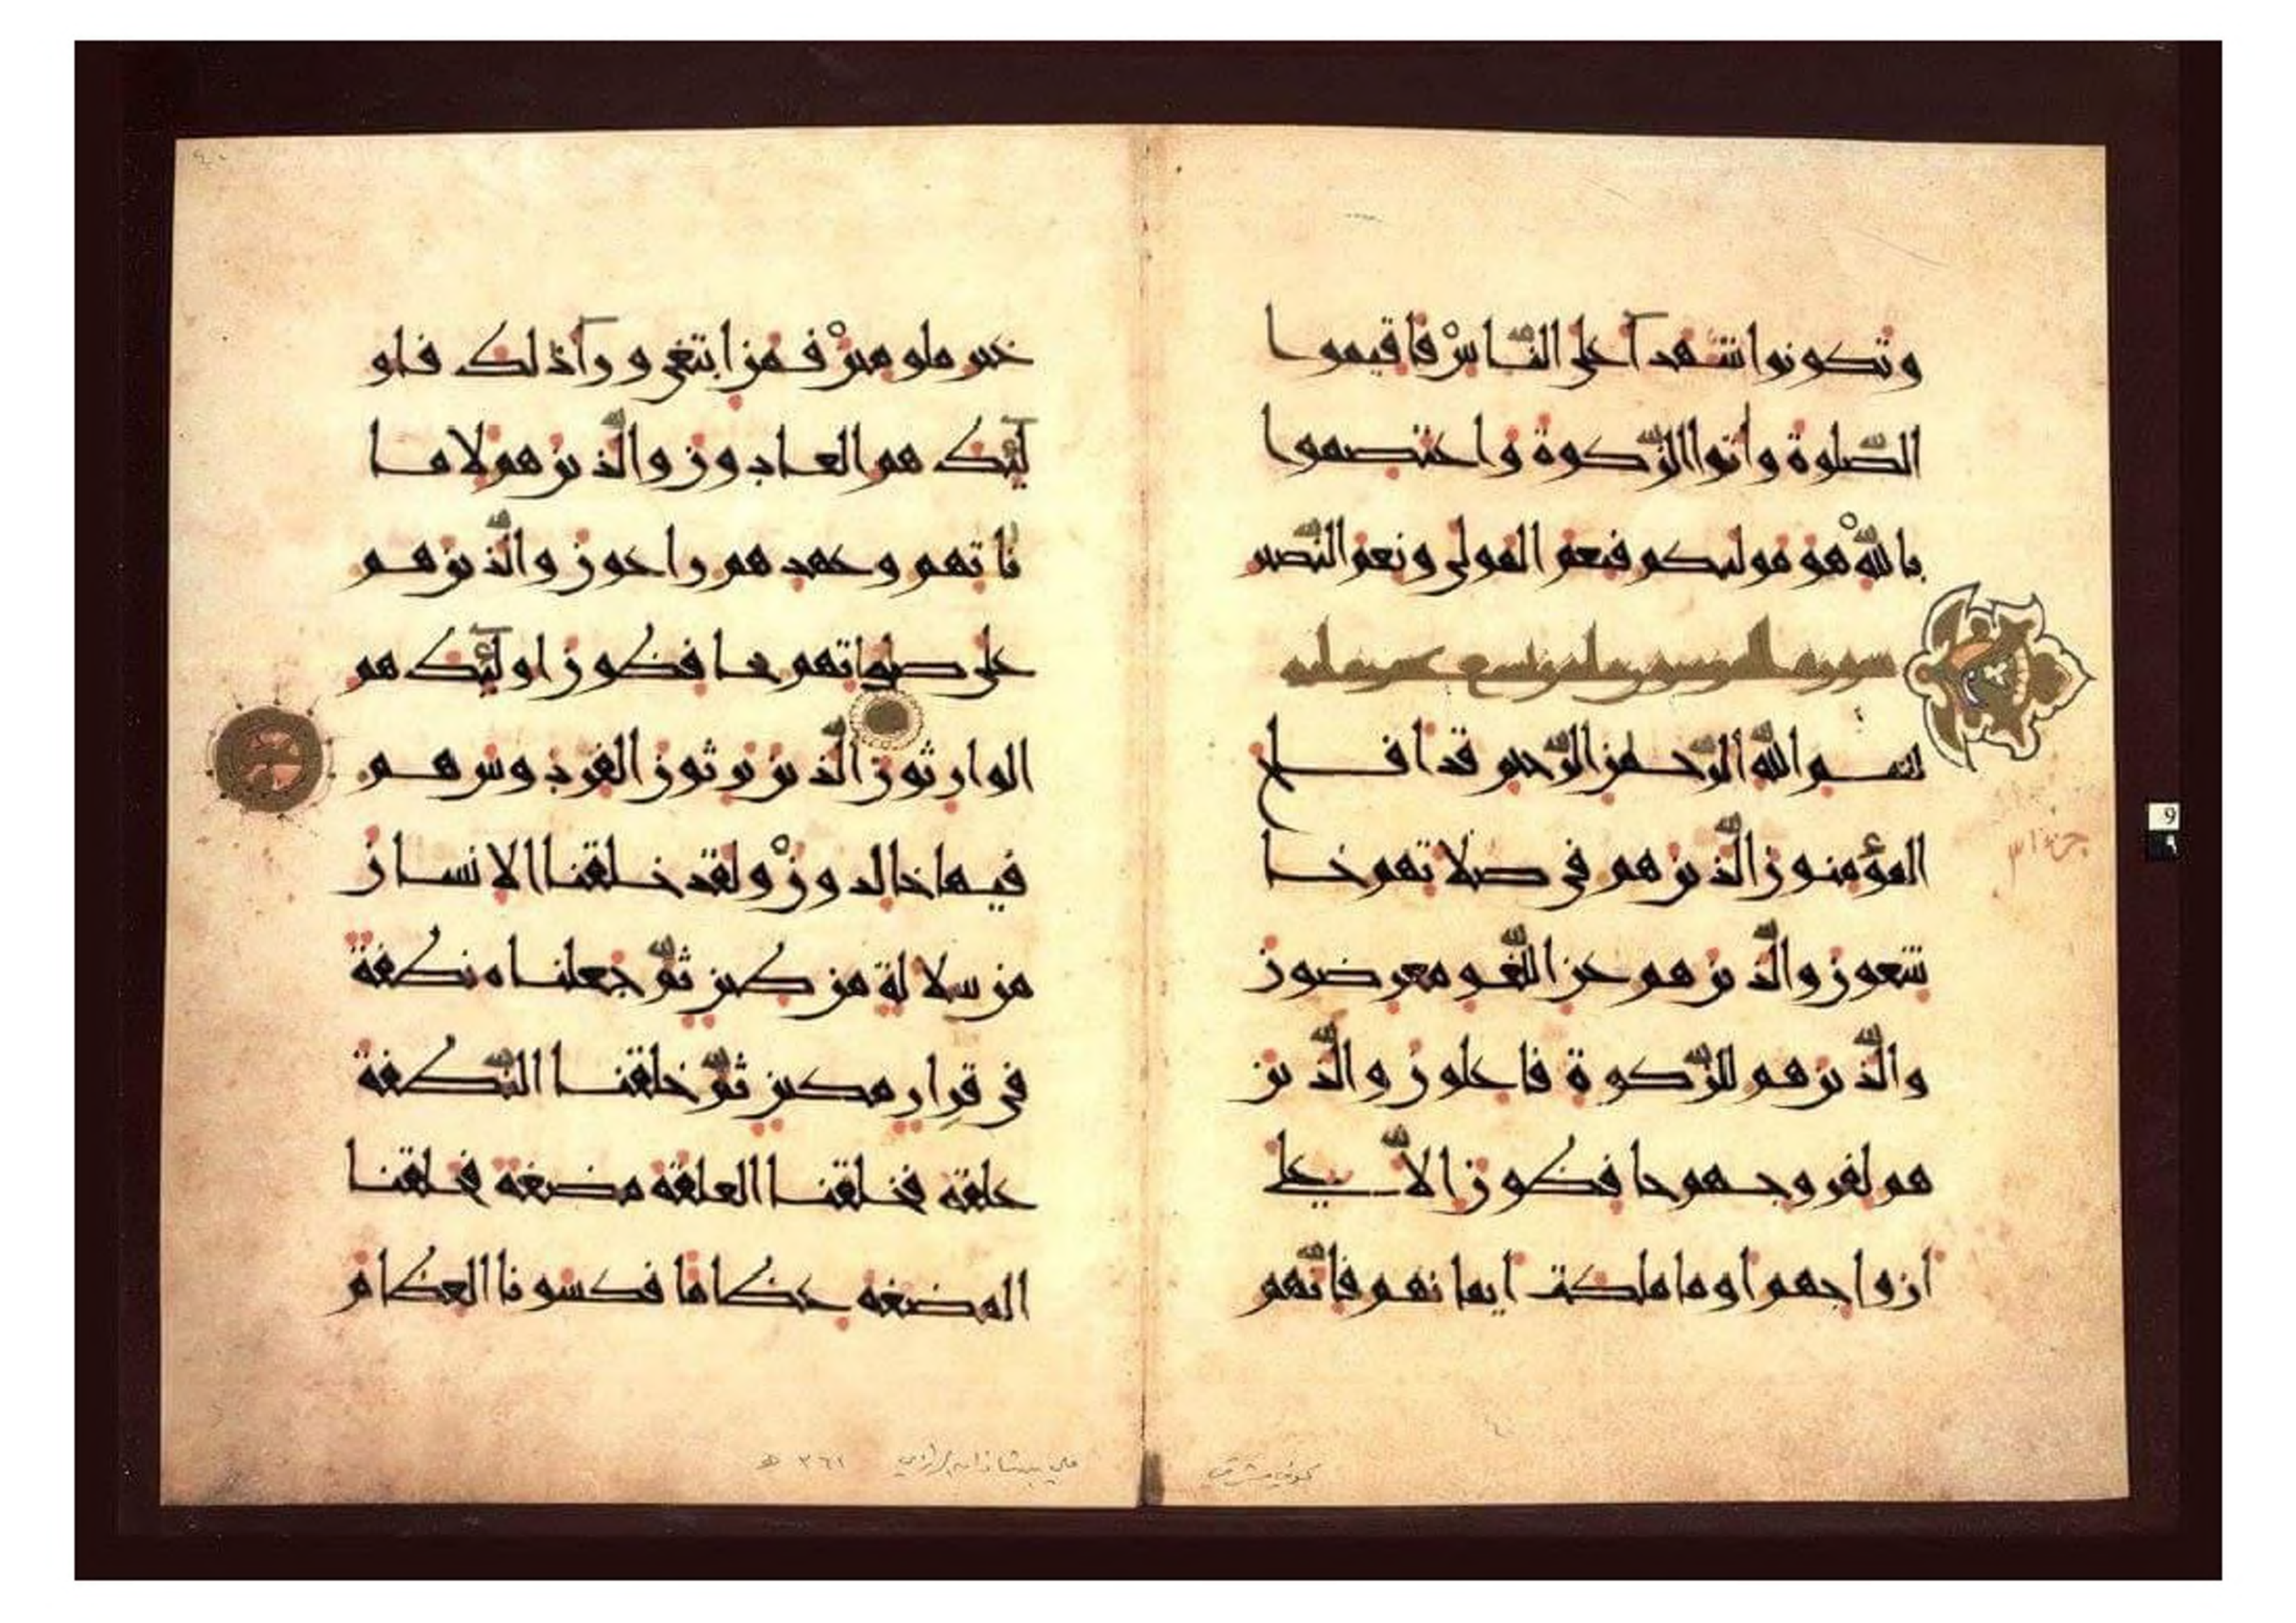 وتكونوا شهدآ على النّاس فاقيموا
الصّلوة وآتوا الزّكوة واعتصموا
بالله هو موليكم فنعم المولى ونعم النّصير
سورة المؤمنون مائة وتسع عشرة آية
بسم الله الرّحمن الرّحيم قد افلح
المؤمنون الّذين هم في صلاتهم خا
شعون والّذين هم عن اللّغو معرضون
والّذين هم للزّكوة فاعلون والّذين
هم لفروجهم حافظون الاّ على
ازواجهم او ما ملكت ايمانهم فانّهم
غير ملومين فمن ابتغى ورآ ذلك فاو
لئك هم العادون والّذين هم لاما
ناتهم وعهدهم راعون والّذين هم
على صلواتهم يحافظون اولئك هم
الوارثون الّذين يرثون الفردوس هم
فيها خالدون ولقد خلقنا الانسان
من سلالة من طين ثمّ جعلناه نطفة
في قرار مكين ثمّ خلقنا النّطفة
علقة فخلقنا العلقة مضغة فخلقنا
المضغة عظاما فكسونا العظام
كوفي مشرقي
علي بن شاذان الرازي ٣٦١ هـ
9